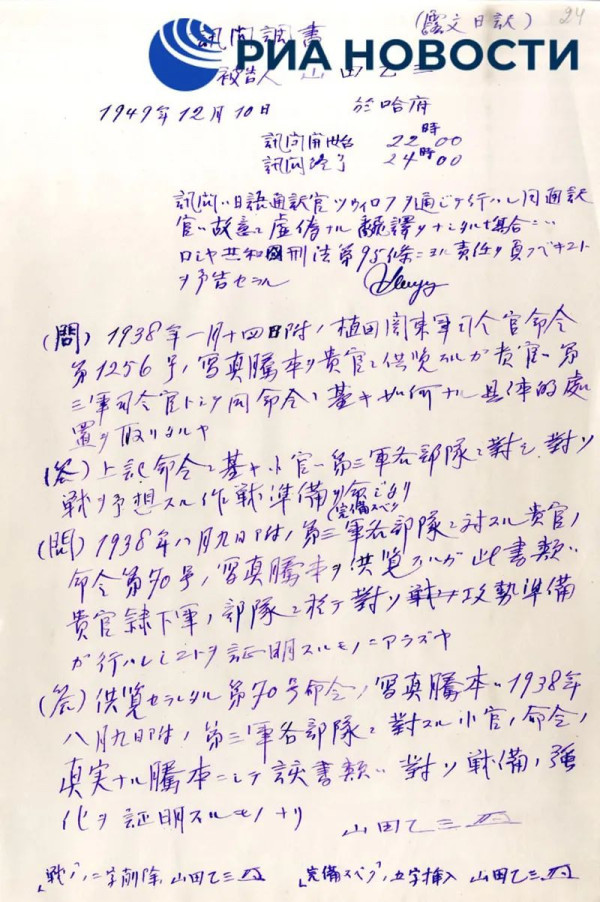 (露文日訳)
24
訊問調書
РИА НОВОСТИ
被告人 山田乙三
1949年12月10日 於哈府
訊問開始 22時00
訊問終了 24時00
訊問ハ日語通訳官ツヴィロフヲ通ジテ行ハレ同通訳
官ハ故意ニ虚偽ナル飜譯ヲナシタル場合ニハ
ロシヤ共和國刑法第95條ニヨル責任ヲ負フベキコト
ヲ予告セラル
(問) 1938年一月十四日附ノ植田関東軍司令官命令
第1256号ノ写真謄本ヲ貴官ニ供覧スルガ貴官ハ第
三軍司令官トシテ同命令ニ基キ如何ナル具体的処
置ヲ取リタルヤ
(答) 上記命令ニ基キ小官ハ第三軍各部隊ニ対シ対ソ
戦ヲ予想スル作戦準備ヲ命ジタリ
(完備スベク)
(問) 1938年八月九日附ノ第三軍各部隊ニ対スル貴官ノ
命令第70号ノ写真謄本ヲ供覧スルガ此書類ハ
貴官隷下軍ノ部隊ニ於テ対ソ戦ノ攻勢準備
ガ行ハレシコトヲ証明スルモノニアラズヤ
(答) 供覧セラレタル第70号命令ノ写真謄本ハ1938年
八月九日附ノ第三軍各部隊ニ対スル小官ノ命令ノ
真実ナル謄本ニシテ該書類ハ対ソ戦備ノ強
化ヲ証明スルモノナリ
山田乙三
「戦ヲ」ノ二字削除 山田乙三 「完備スベク」ノ五字挿入 山田乙三